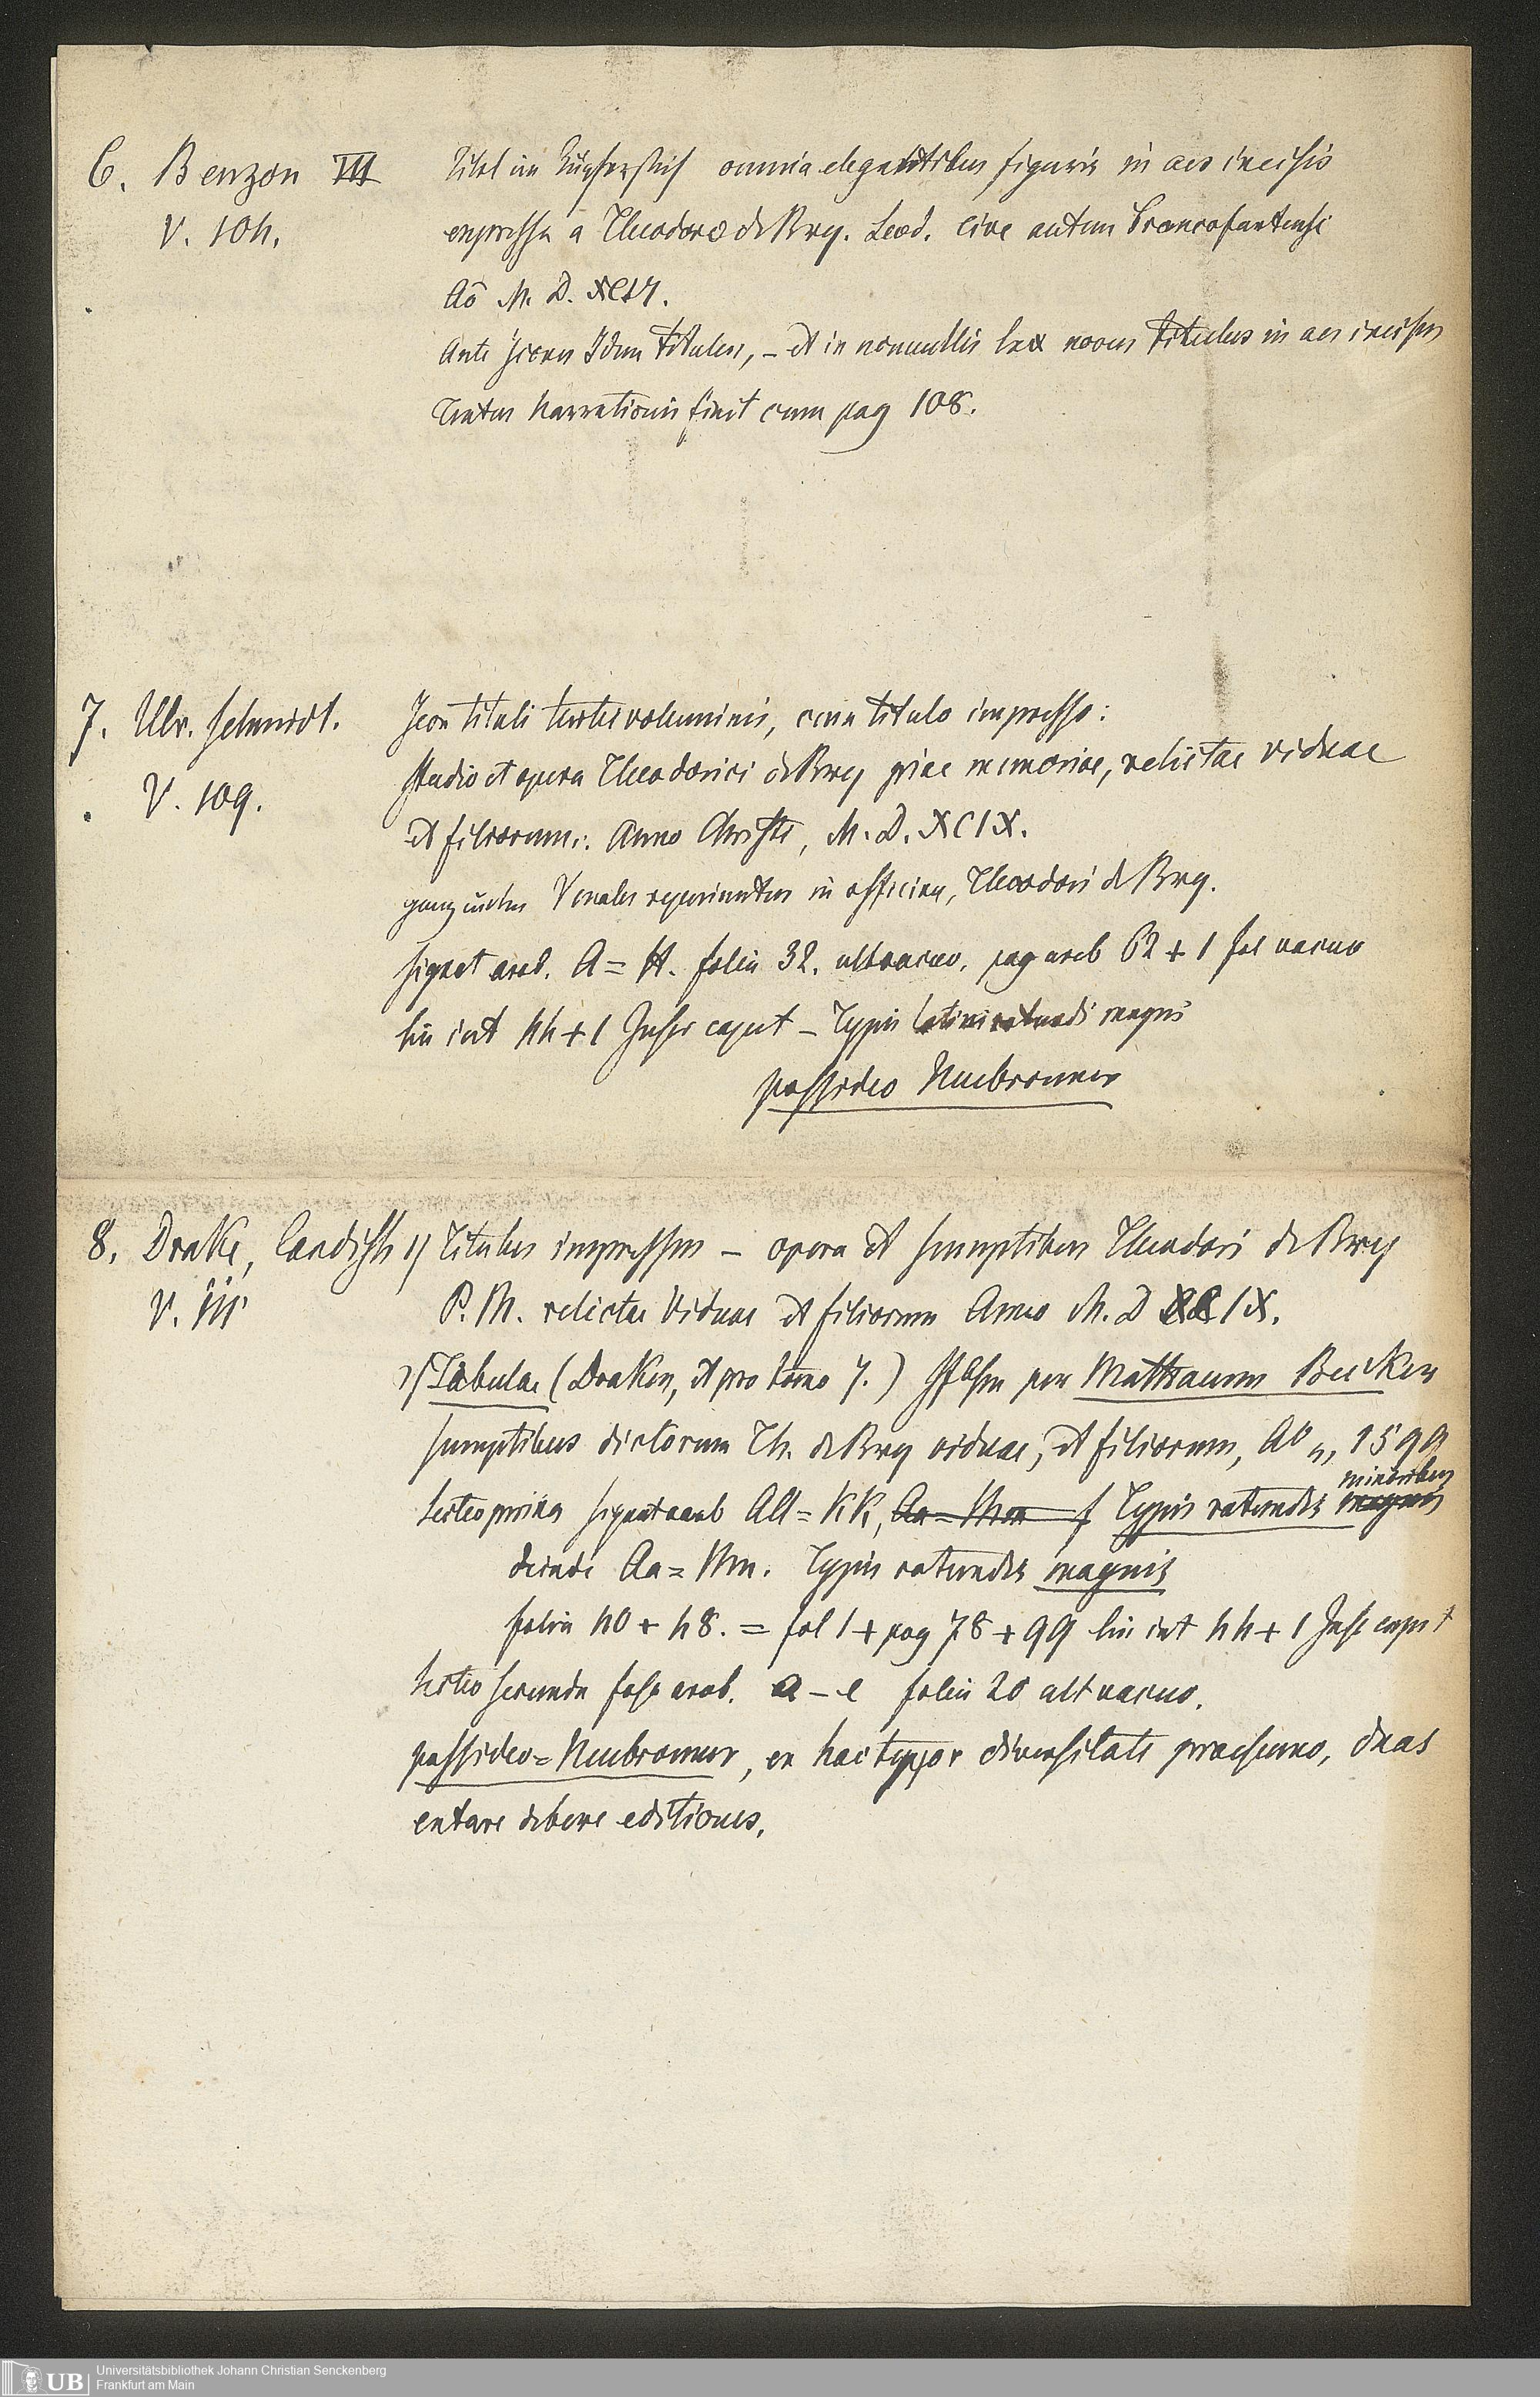 6. Benzon III Titel im Kupferstich omnia elegantibus figuris in aes incisis
V. 104. expressa a Theodoro de Bry. Leod. cive autem Francofurtensi
Aō M. D. XCVI.
Ante Icones Idem titulus, – et in nonnullis novus titulus in aes incisus
Textus narrationis finit cum pag 108.
7. Ulr. Schmidt. Icon tituli tertii voluminis, cum titulo impresso:
V. 109. studio et opera Theodorici de Bry piae memoriae, relictae viduae
et filiorum: Anno Christi, M. D. XCIX.
ganz unten Venales reperiuntur in officina, Theodori de Bry.
signat arab. A = H. folia 32. ult vacuo. pag arab 62 + 1 fol vacuo
lin int 44 + 1 Inscr caput – Typis latinis rotundis magnis
possideo Nuebronner
8. Drake, Candish 1) Titulus impressus – opera et sumptibus Theodori de Bry
V. 111 P. M. relictae Viduae et filiorum Anno M. D XCIX.
2) Tabulae (Draken, et pro tomo 7.) per Matthaeum Becker
sumptibus dictorum Th. de Bry viduae, et filiorum, Aō 1599
Sectio prima signat arab AA = KK, Aa = Mm Typis rotundis magnis minoribus
deinde Aa = Mm. Typis rotundis magnis
folia 40 + 48. = fol 1 + pag 78 + 99 lin int 44 + 1 Inscr caput
Sectio secunda arab. a – e folia 20 ult vacuo.
possideo = Nuebronner, ex hac typor diversitate praesumo, duas
extare debere editiones.
Universitätsbibliothek Johann Christian Senckenberg
Frankfurt am Main
UB